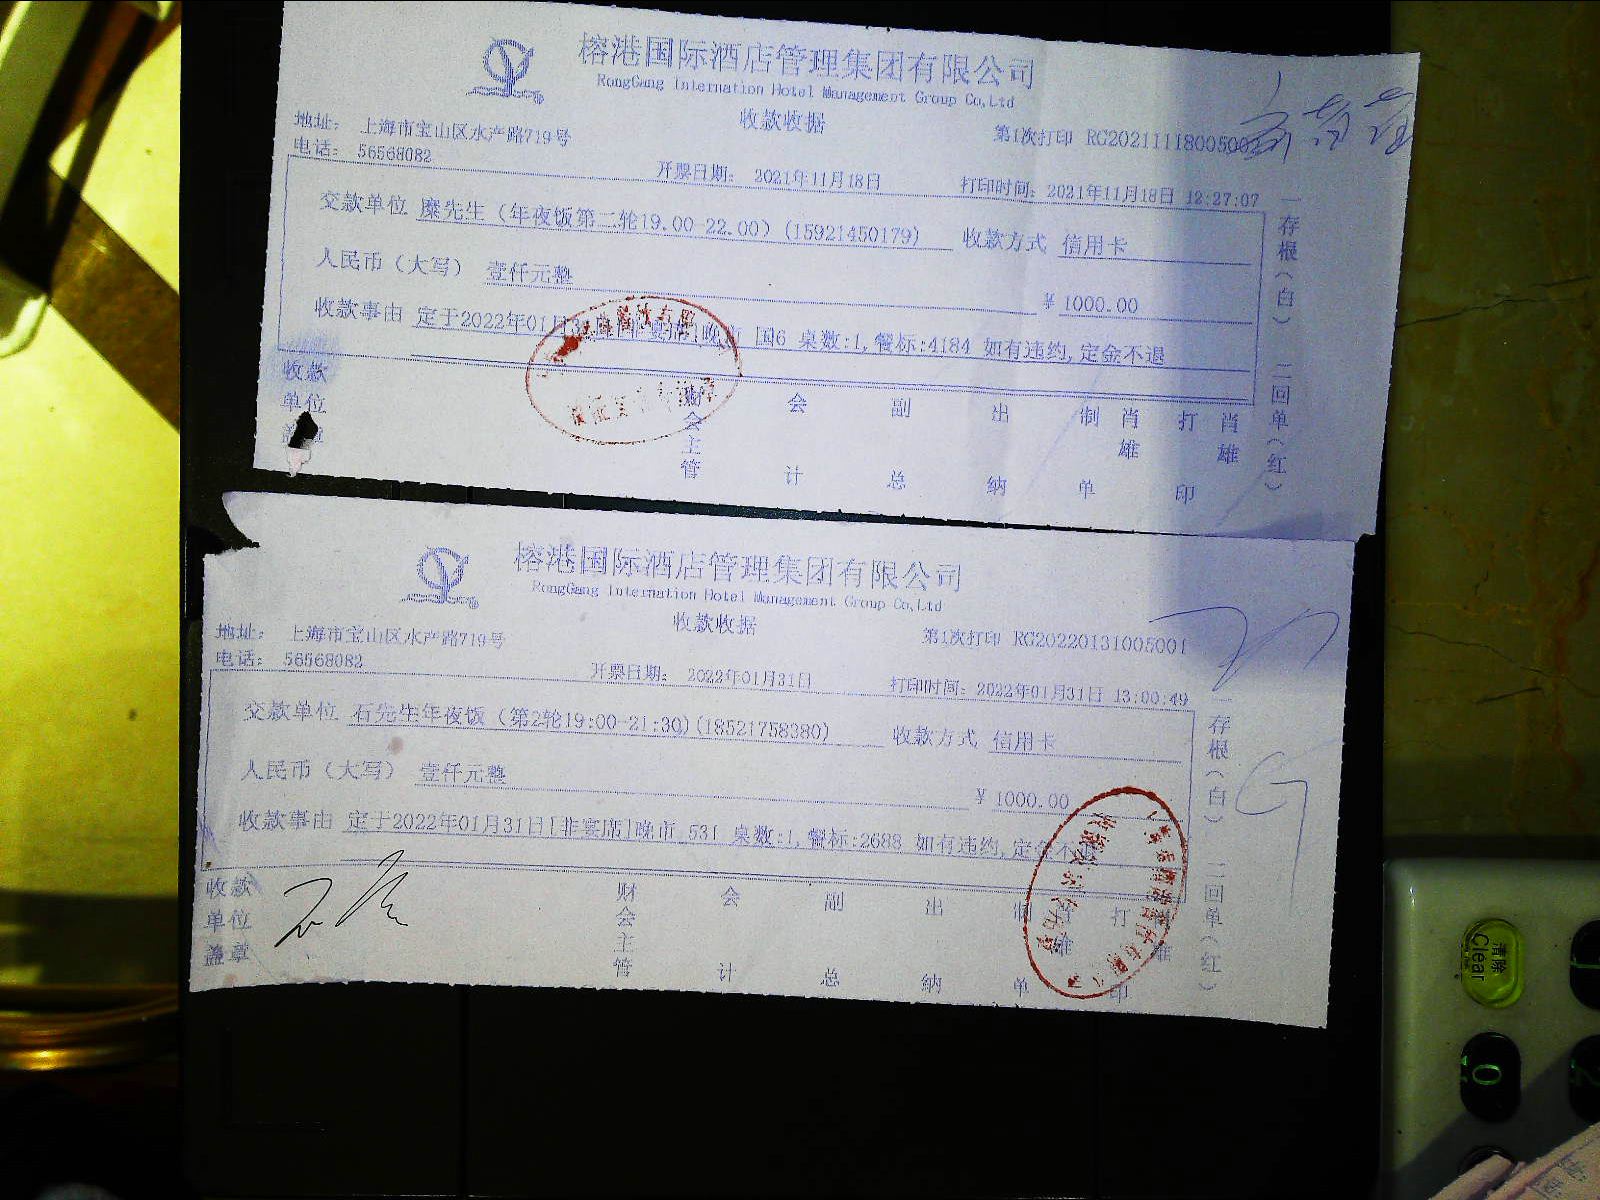 榕港国际酒店管理集团有限公司
RongGang Internation Hotel Management Group Co,Ltd
收款收据
地址： 上海市宝山区水产路719号
第1次打印 RG202111180050
电话： 56568082
开票日期： 2021年11月18日
打印时间：2021年11月18日 12:27:07
交款单位 糜先生（年夜饭第二轮19.00-22.00）(15921450179)
收款方式 信用卡
人民币（大写） 壹仟元整
￥1000.00
收款事由 定于2022年01月 晚市 国6 桌数:1,餐标:4184 如有违约,定金不退
收款单位
财会主管
会计
副总
出纳
制单
肖雄
打印
肖雄
一存根（白） 二回单（红）
榕港国际酒店管理集团有限公司
RongGang Internation Hotel Management Group Co,Ltd
收款收据
地址： 上海市宝山区水产路719号
第1次打印 RG20220131005001
电话： 56568082
开票日期： 2022年01月31日
打印时间：2022年01月31日 13:00:49
交款单位 石先生年夜饭（第2轮19:00-21:30)(18521758380)
收款方式 信用卡
人民币（大写） 壹仟元整
￥1000.00
收款事由 定于2022年01月31日[非宴席]晚市 531 桌数:1,餐标:2688 如有违约,定金不
收款单位盖章
财会主管
会计
副总
出纳
制单
打印
存根（白） 二回单（红）
清除
Clear
0